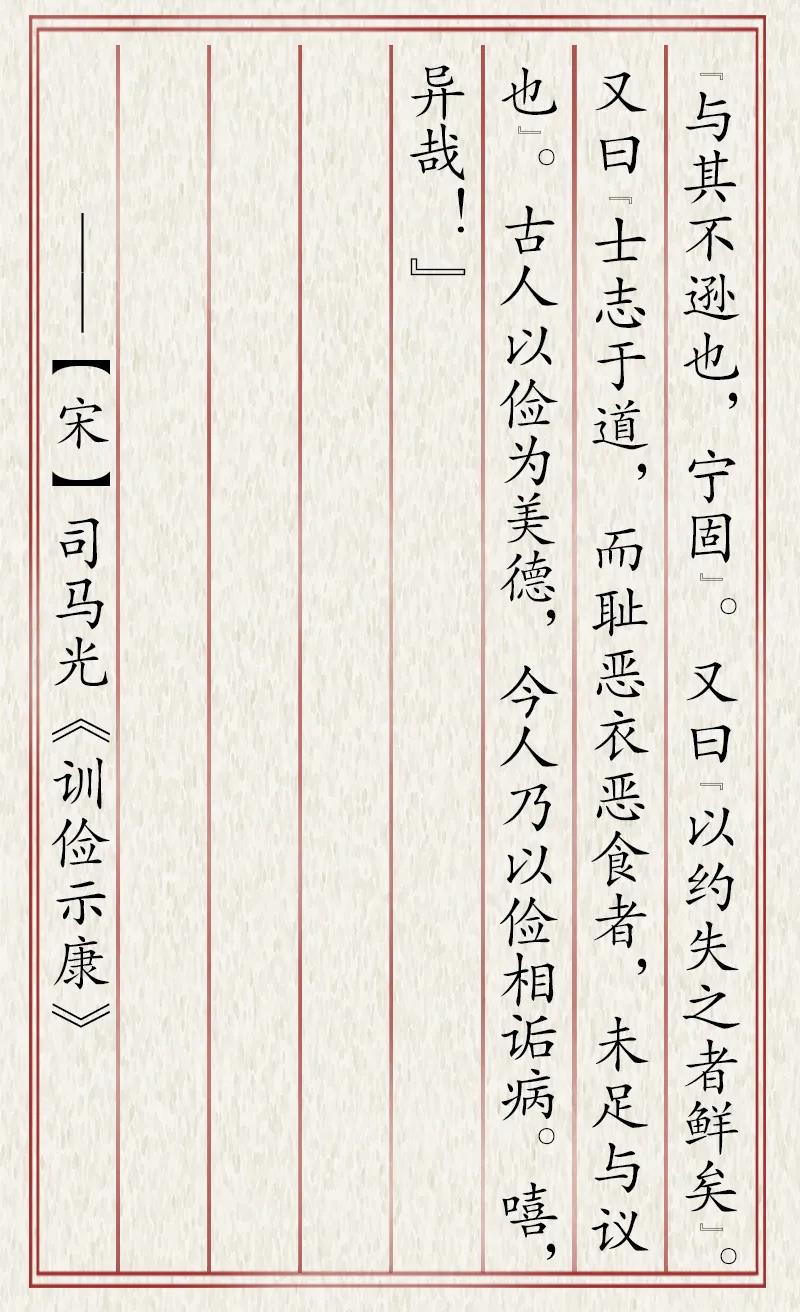 『与其不逊也，宁固』。又曰『以约失之者鲜矣』。
又曰『士志于道，而耻恶衣恶食者，未足与议
也』。古人以俭为美德，今人乃以俭相诟病。嘻，
异哉！』
——【宋】司马光《训俭示康》